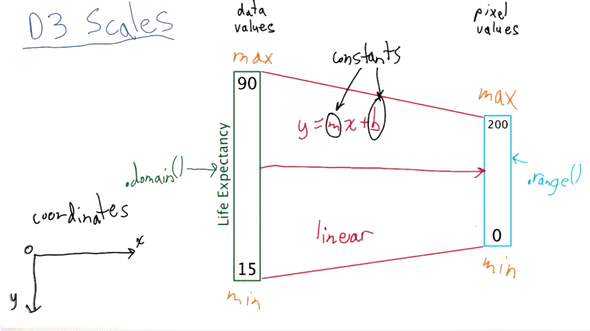 D3 Scales
data
values
pixel
values
max
constants
max
90
200
y = mx + b
.domain()
Life Expectancy
.range()
coordinates
0
x
y
linear
15
0
min
min